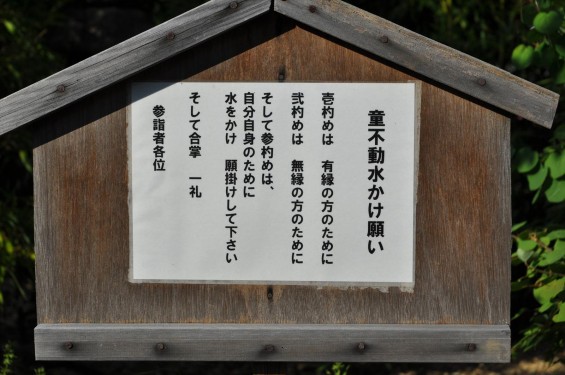 童不動水かけ願い
壱杓めは　有縁の方のために
弐杓めは　無縁の方のために
そして参杓めは、
自分自身のために
水をかけ　願掛けして下さい
そして合掌　一礼
参詣者各位